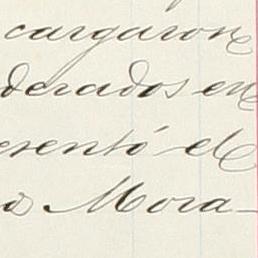 cargaron
derados en
esentó el
o Mora-